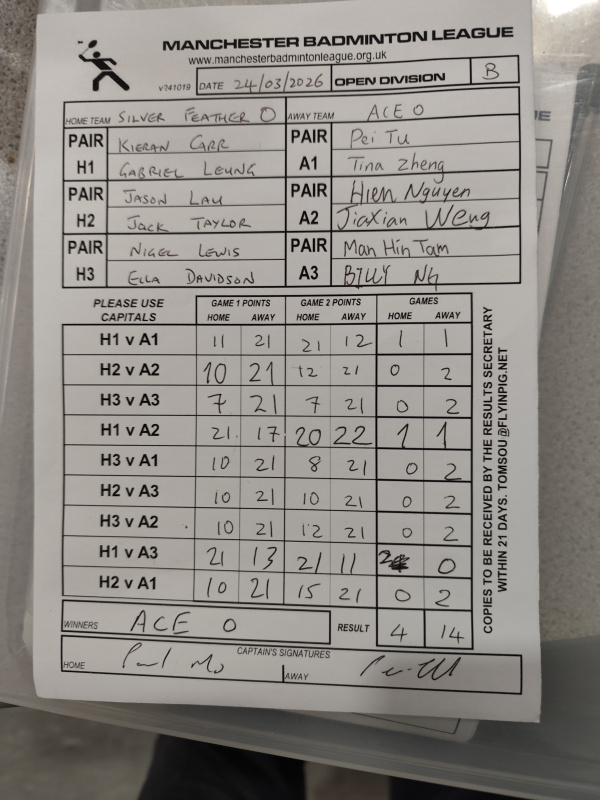 MANCHESTER BADMINTON LEAGUE
www.manchesterbadmintonleague.org.uk
v241019 DATE 24/03/2026 OPEN DIVISION B
HOME TEAM SILVER FEATHER O AWAY TEAM ACE O
PAIR H1 KIERAN CARR PAIR A1 Pei Tu
GABRIEL LEUNG Tina Zheng
PAIR H2 JASON LAU PAIR A2 Hien Nguyen
JACK TAYLOR JiaXian Weng
PAIR H3 NIGEL LEWIS PAIR A3 Man Hin Tam
ELLA DAVIDSON BILLY NG
PLEASE USE CAPITALS GAME 1 POINTS GAME 2 POINTS GAMES
HOME AWAY HOME AWAY HOME AWAY
H1 v A1 11 21 21 12 1 1
H2 v A2 10 21 12 21 0 2
H3 v A3 7 21 7 21 0 2
H1 v A2 21 17 20 22 1 1
H3 v A1 10 21 8 21 0 2
H2 v A3 10 21 10 21 0 2
H3 v A2 10 21 12 21 0 2
H1 v A3 21 13 21 11 2 0
H2 v A1 10 21 15 21 0 2
WINNERS ACE O RESULT 4 14
CAPTAIN'S SIGNATURES
HOME AWAY
COPIES TO BE RECEIVED BY THE RESULTS SECRETARY
WITHIN 21 DAYS. TOMSOU@FLYINPIG.NET